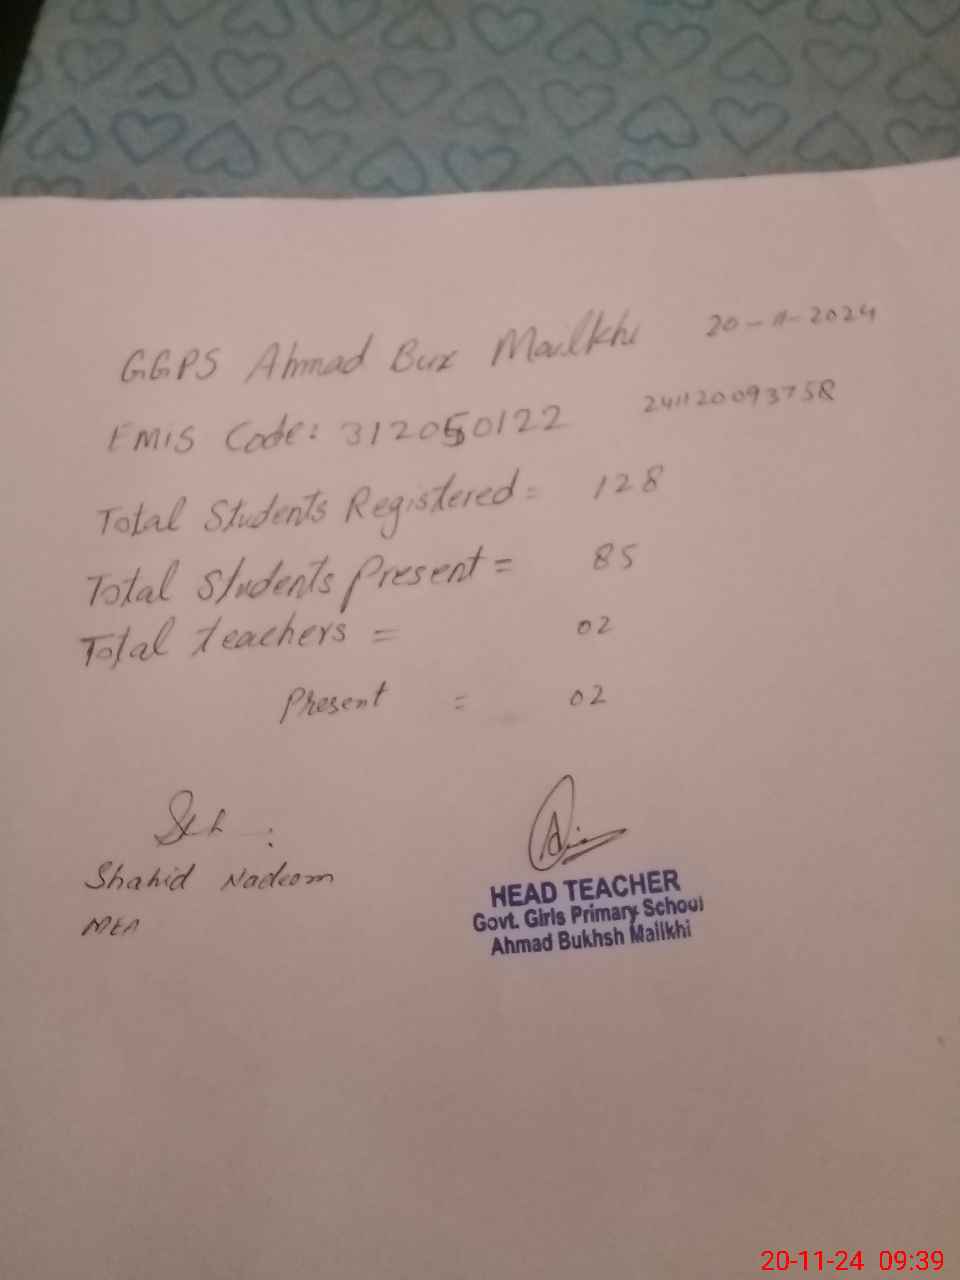 GGPS Ahmad Bux Mailkhi 20-11-2024
EMIS Code: 312050122 241120093758
Total Students Registered = 128
Total Students Present = 85
Total teachers = 02
Present = 02
Shahid Nadeem
MEA
HEAD TEACHER
Govt. Girls Primary School
Ahmad Bukhsh Mailkhi
20-11-24 09:39